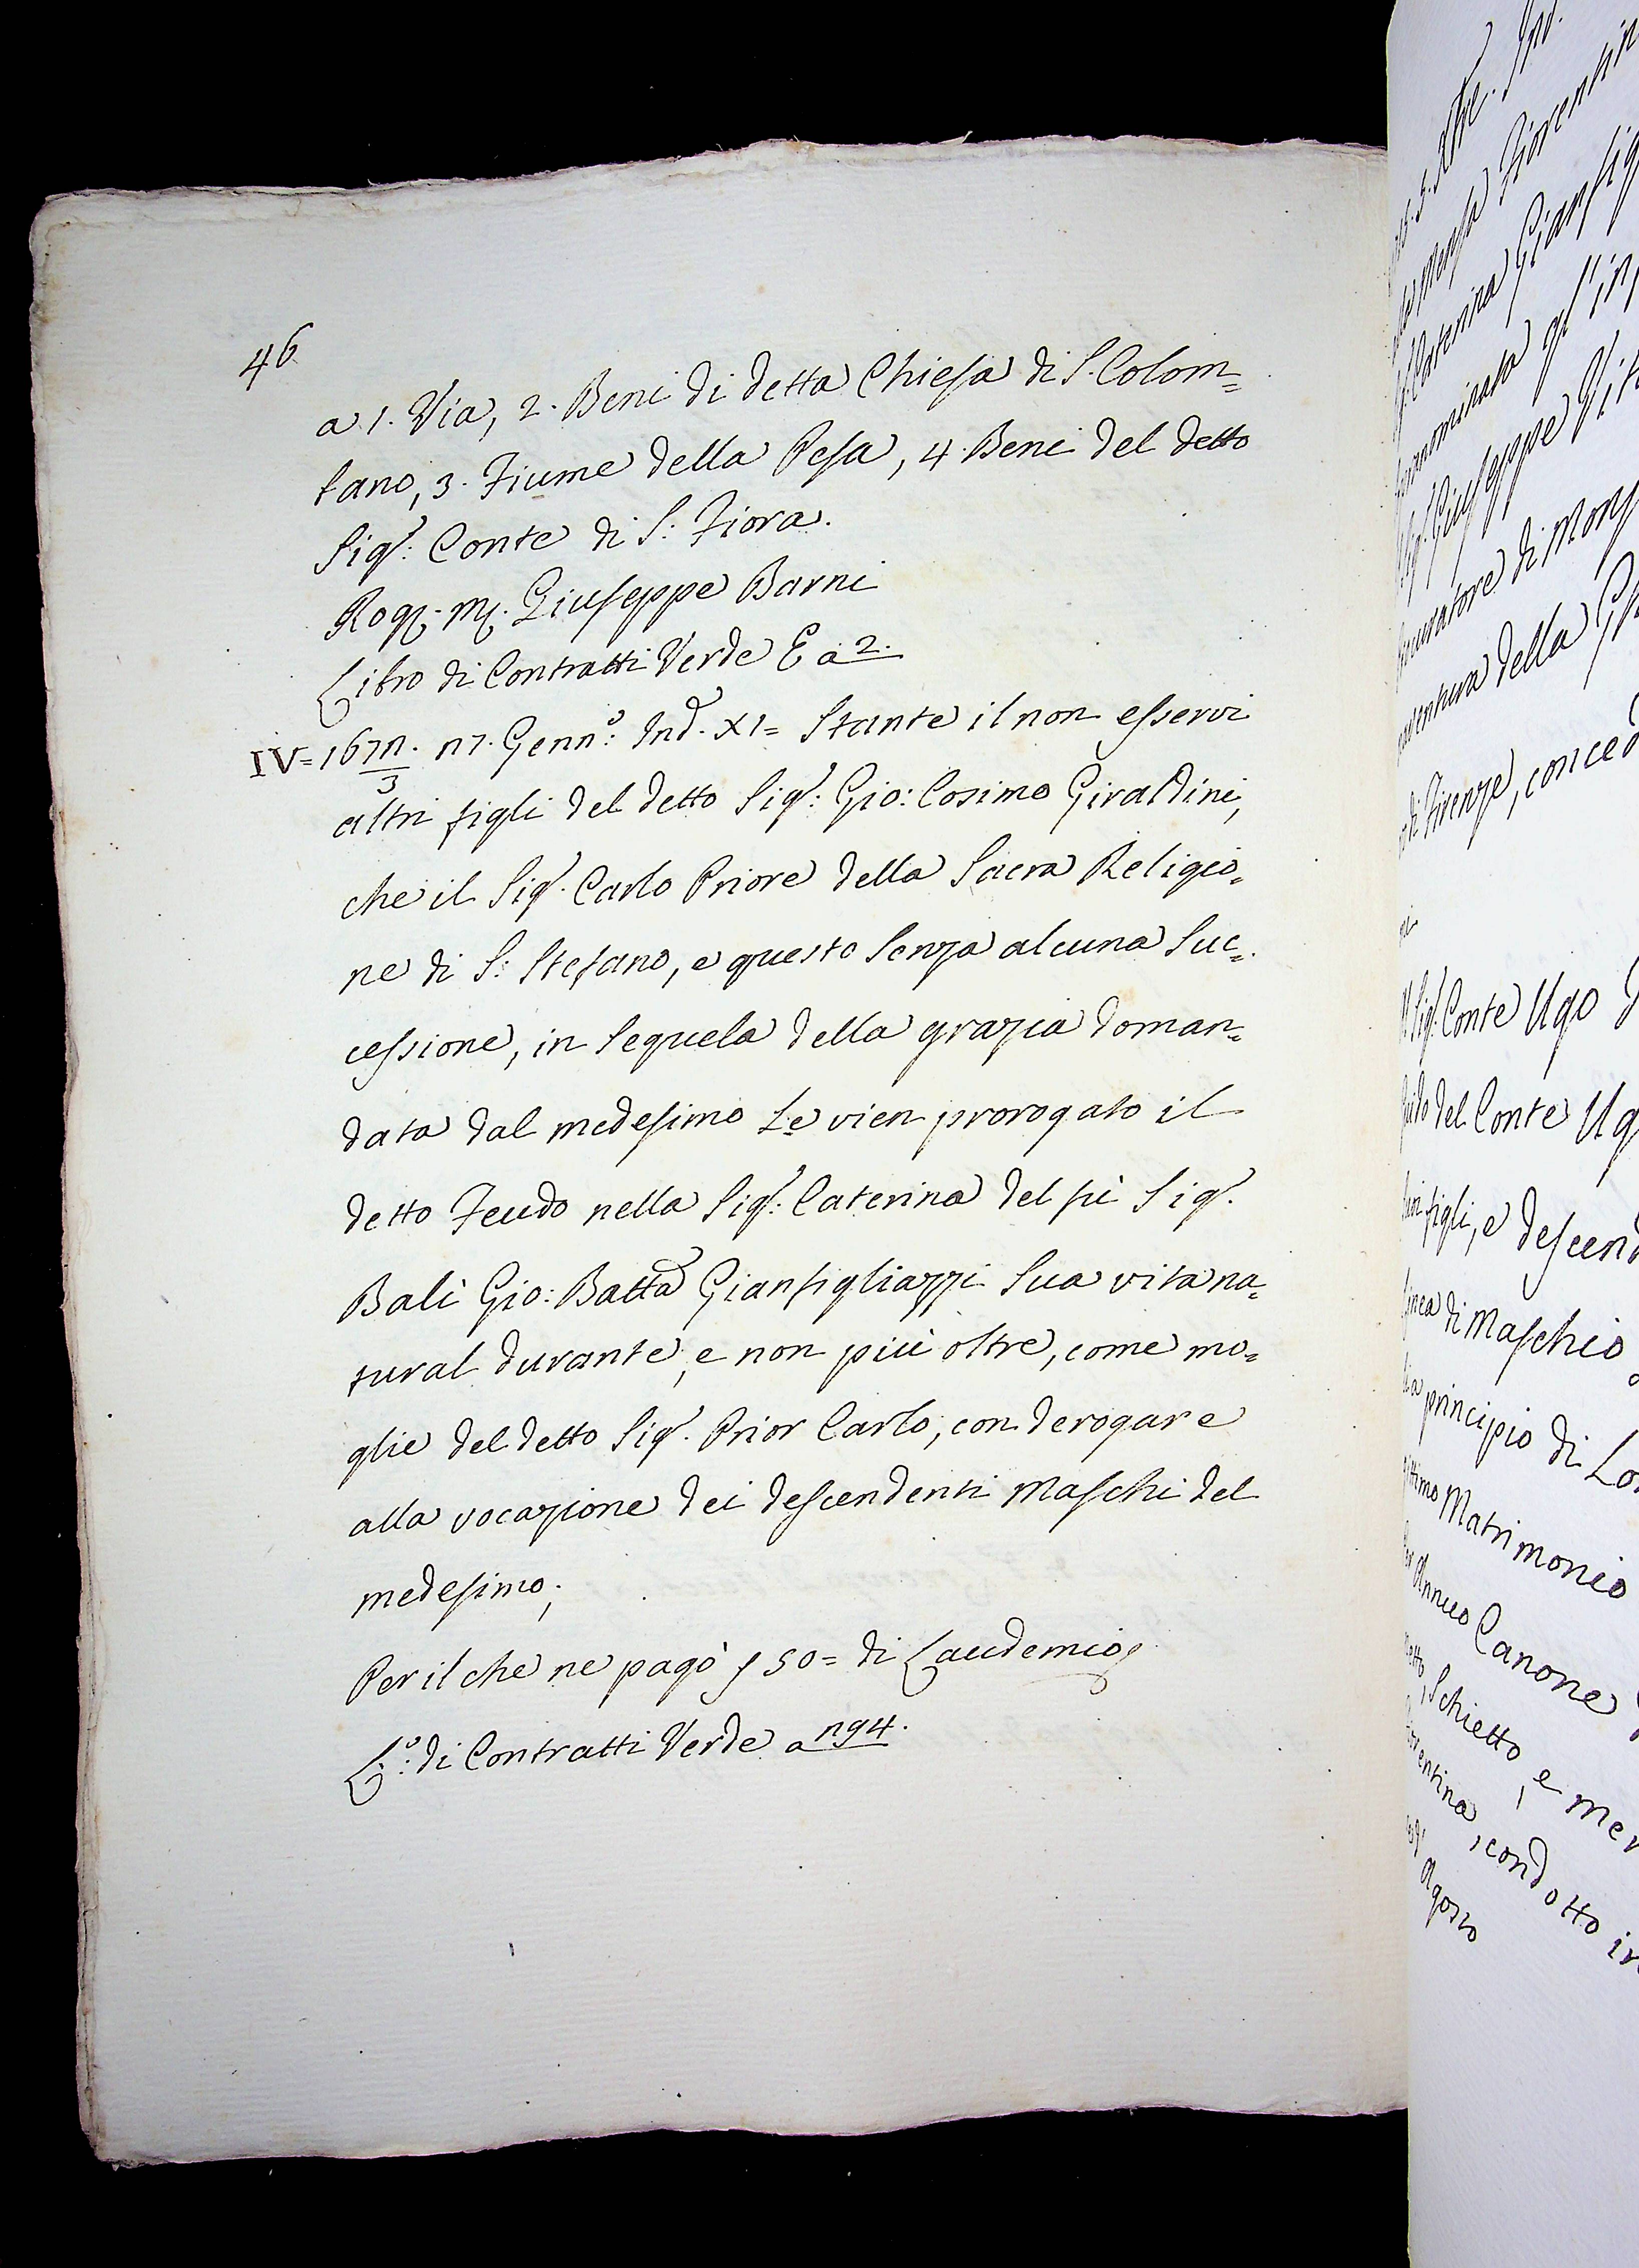 46
a 1. Via, 2. Beni di detta Chiesa di S. Colom=
bano, 3. Fiume della Pesa, 4. Beni del detto
Sig.r: Conte di S: Fiora.
Rog. m. Giuseppe Barni
Libro di Contratti Verde E a 2.
IV= 1672/3. 27. Genn.o: Ind. XI= Stante il non esservi
altri figli del detto Sig.r: Gio: Cosimo Giraldini,
che il Sig.r Carlo Priore della Sacra Religio=
ne di S: Stefano, e questo senza alcuna Suc=
cessione, in sequela della grazia doman=
data dal medesimo Le vien prorogato il
detto Feudo nella Sig.r: Caterina del fù Sig.r
Balì Gio: Batta Gianfigliazzi sua vita na=
tural durante, e non più oltre, come mo=
glie del detto Sig.r Prior Carlo, con derogare
alla vocazione dei descendenti Maschi del
medesimo;
Per il che ne pagò ƒ 50= di Laudemio
L.o: di Contratti Verde a 294.
Mensa Fiorentin
Caterina Gianfig
Giuseppe
di Mons
della
di Firenze, conced
Sig.r: Conte Ugo
del Conte Ug
figli, e descend
linea di Maschio
principio di Lo
Matrimonio
Annuo Canone
Schietto, e mer
condotto in
Agosto